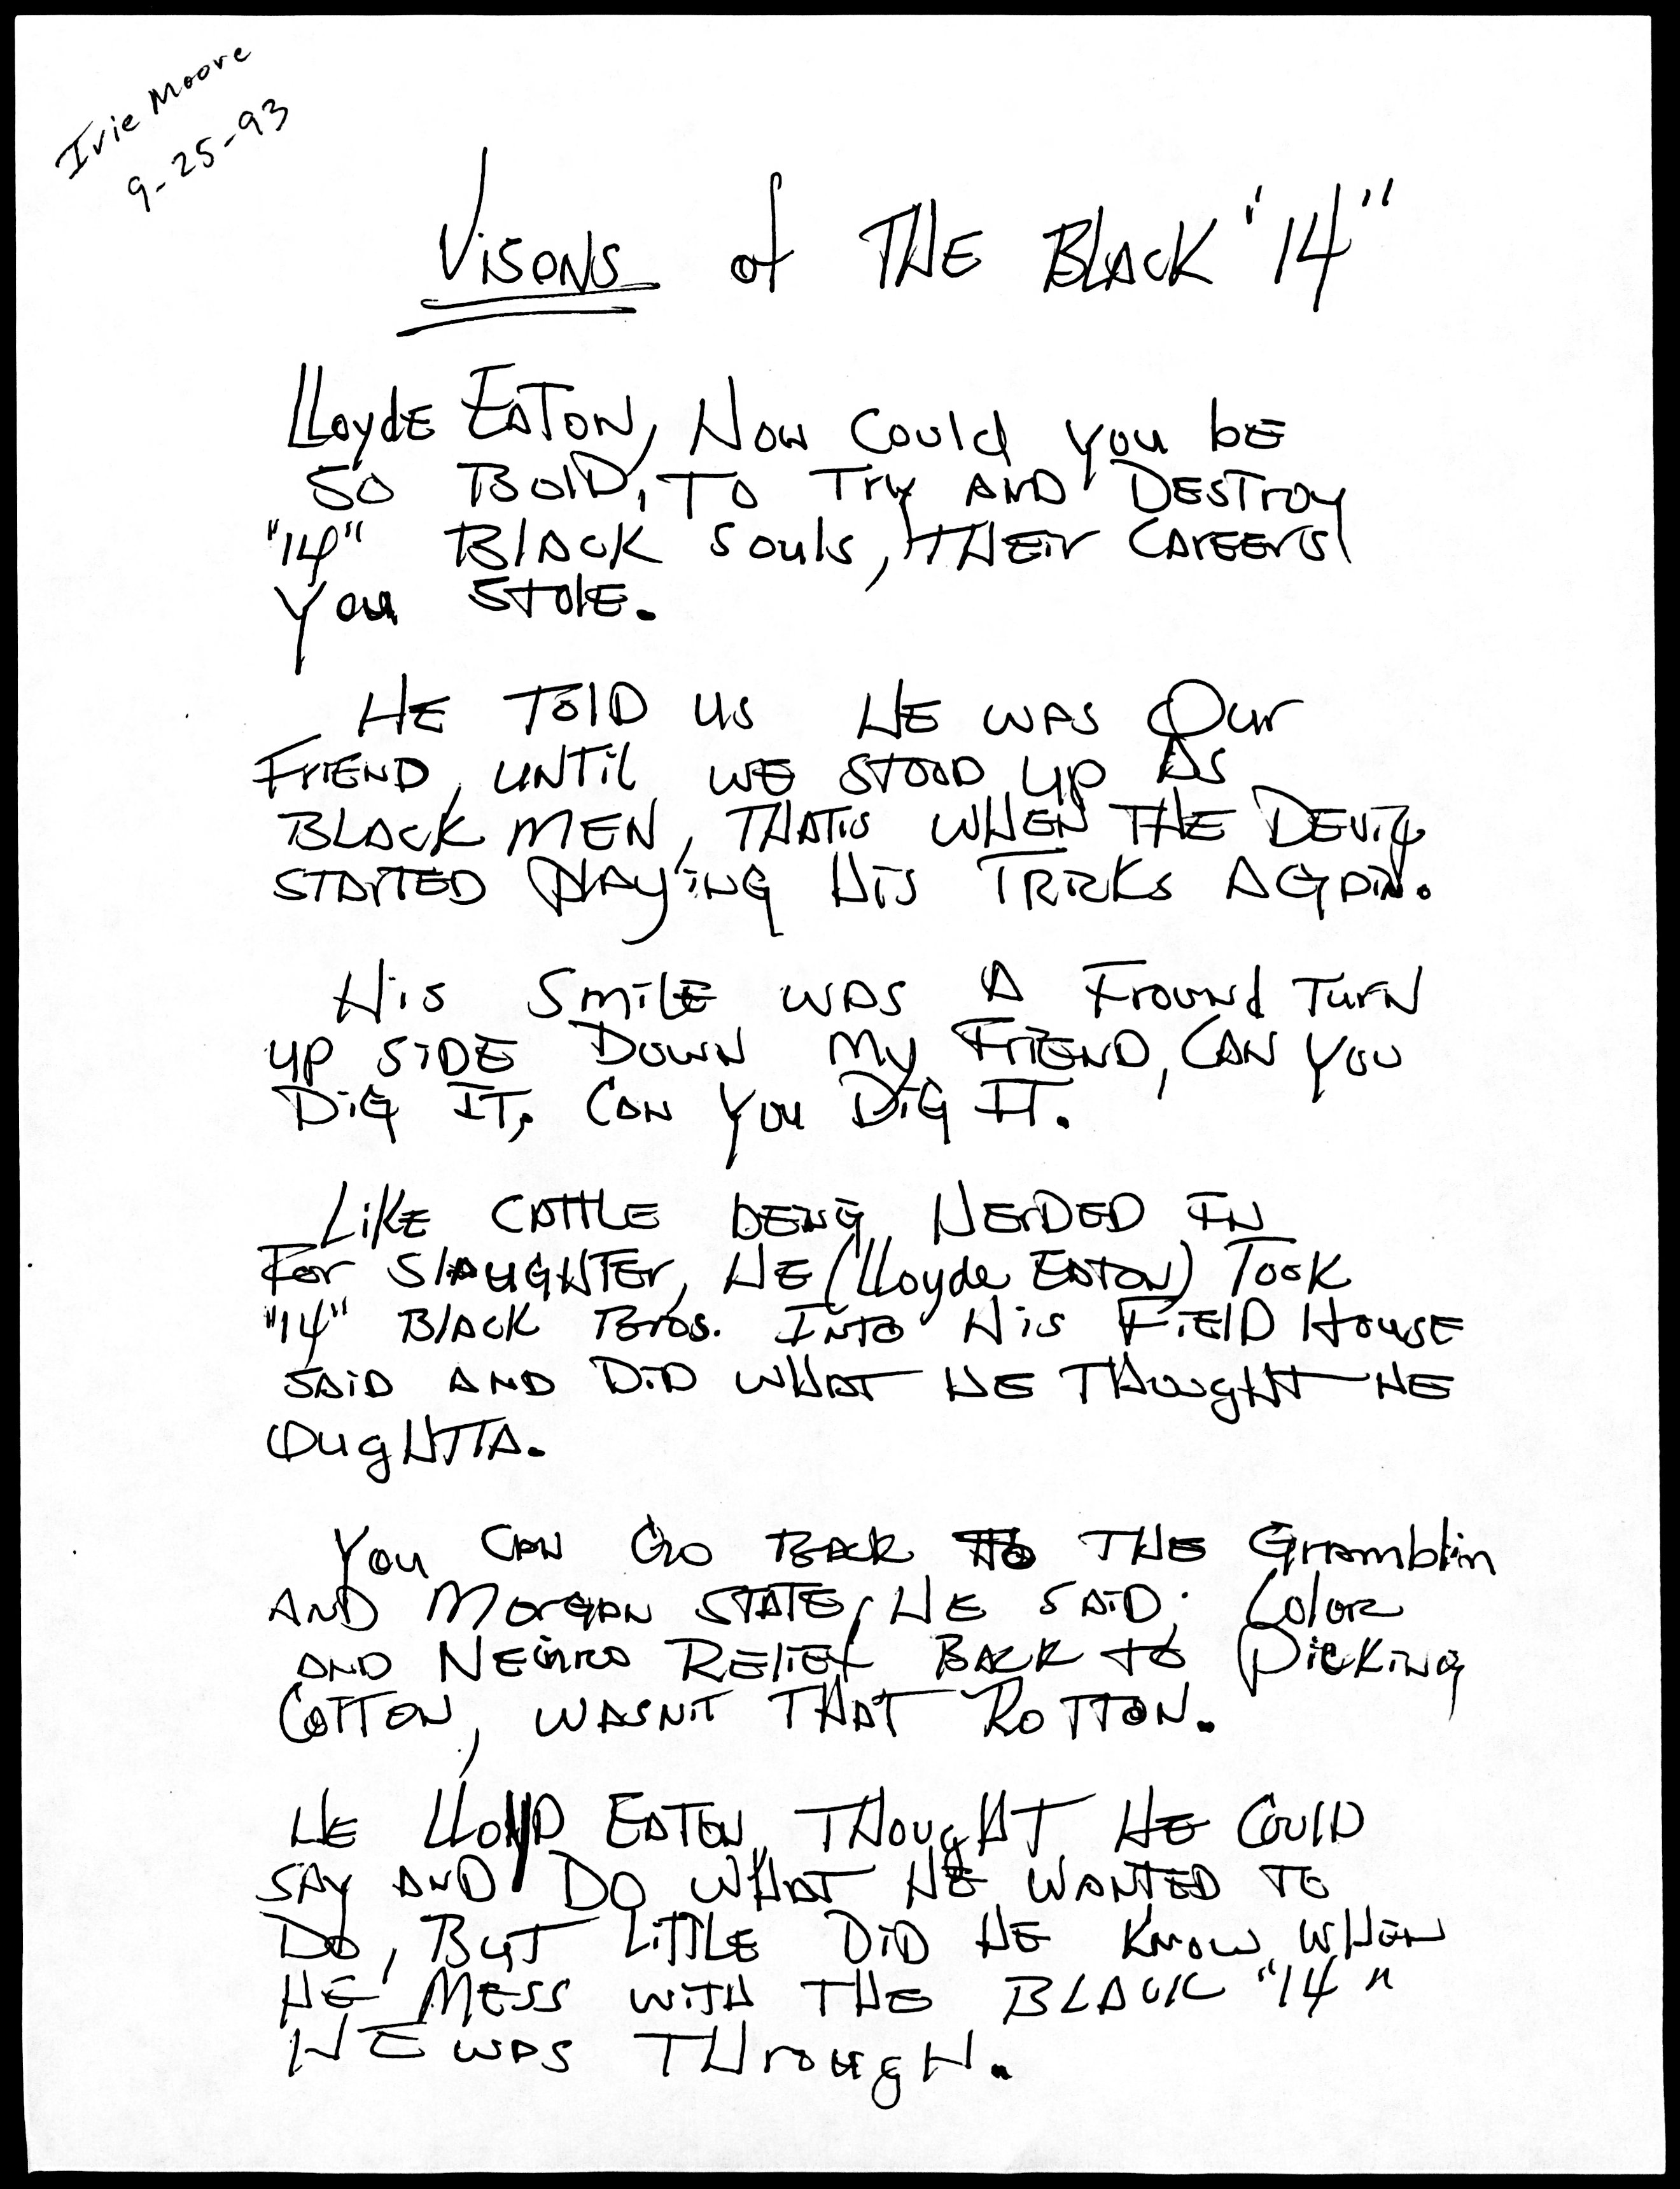 Irie Moore
9-25-93
Visons of THE BLACK "14"
LLoyde EATON, How Could you be
so Bold, To Try AND DESTroy
"14" Black Souls, THEir CArEErs
You STole.
HE Told us HE WAS Our
FriEND, UNTil WE STOOD up AS
BLACK MEN, THAT'S WHEN THE DEvil
STArTED PlAYiNG His TRICKS AGAIN.
His SmilE WAS A Fround TurN
up SIDE DOWN My FriEND, CAN You
DiG IT, CAN You DiG IT.
LikE CATTLE bEING HErDED IN
For SlAUGHTEr, HE (Lloyde EATON) Took
"14" BlACK Bros. INTO His FiElD HousE
SAiD AND DiD WHAT HE THougHT HE
OugHTTA.
You CAN Go BACK To THE Gramblin
AND MorgAN STATE, HE SAiD; Color
AND NEGRO REliEf BACK To PiCKING
COTTON, WASN'T THAT ROTTON.
HE LLOYD EATON, THOugHT HE CoulD
SAy AND DO WHAT HE WANTED TO
Do, BuT LiTTLE DiD HE KNOW, WHEN
HE MESS WiTH THE BLACK "14"
HE WAS THrougH.